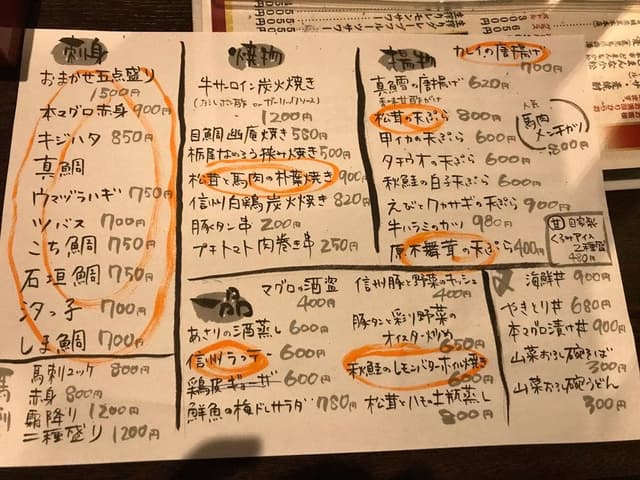 刺身
おまかせ五点盛り
1500円
本マグロ赤身 900円
キジハタ 850円
真鯛
ウマヅラハギ 750円
ツバス 700円
こち鯛 750円
石垣鯛 750円
汐っ子 700円
しま鯛 700円
馬刺
馬刺ユッケ 800円
赤身 800円
霜降り 1200円
二種盛り 1200円
焼物
牛サーロイン炭火焼き
1200円
目鯛幽庵焼き 580円
栃尾なめろう挟み焼き 500円
松茸と馬肉の朴葉焼き 900円
信州白鶏炭火焼き 820円
豚タン串 200円
プチトマト肉巻き串 250円
揚物
カレイの唐揚げ
700円
真鱈の唐揚げ 620円
松茸の天ぷら 800円
甲イカの天ぷら 600円
タチウオの天ぷら 600円
秋鮭の白子天ぷら 600円
えびとワカサギの天ぷら 900円
牛ハラミのカツ 980円
原木舞茸の天ぷら 400円
人気
馬肉
メンチカツ
800円
甘 自家製
くるみアイス
2種盛
480円
一品
マグロの酒盗
400円
あさりの酒蒸し 600円
信州ラッテ 600円
鶏皮ギョーザ 600円
鮮魚の梅ドレサラダ 780円
信州豚と野菜のキッシュ
400円
豚タンと彩り野菜の
オイスター炒め
650円
秋鮭のレモンバターホイル焼き
600円
松茸とハモの土瓶蒸し
800円
海鮮丼 900円
やきとり丼 680円
本マグロ漬け丼 900円
山菜おろし碗そば
300円
山菜おろし碗うどん
300円